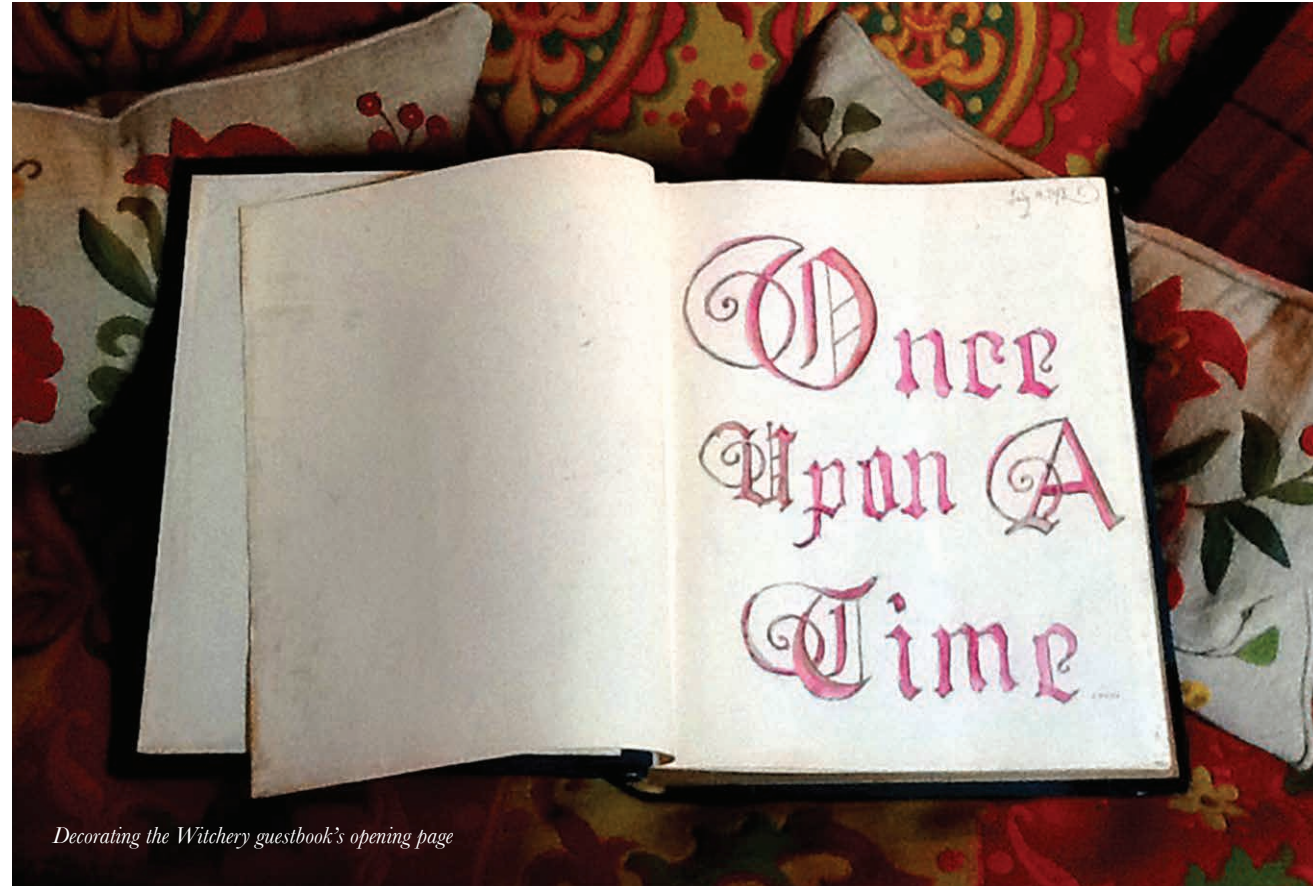 Once
Upon A
Time
Decorating the Witchery guestbook's opening page